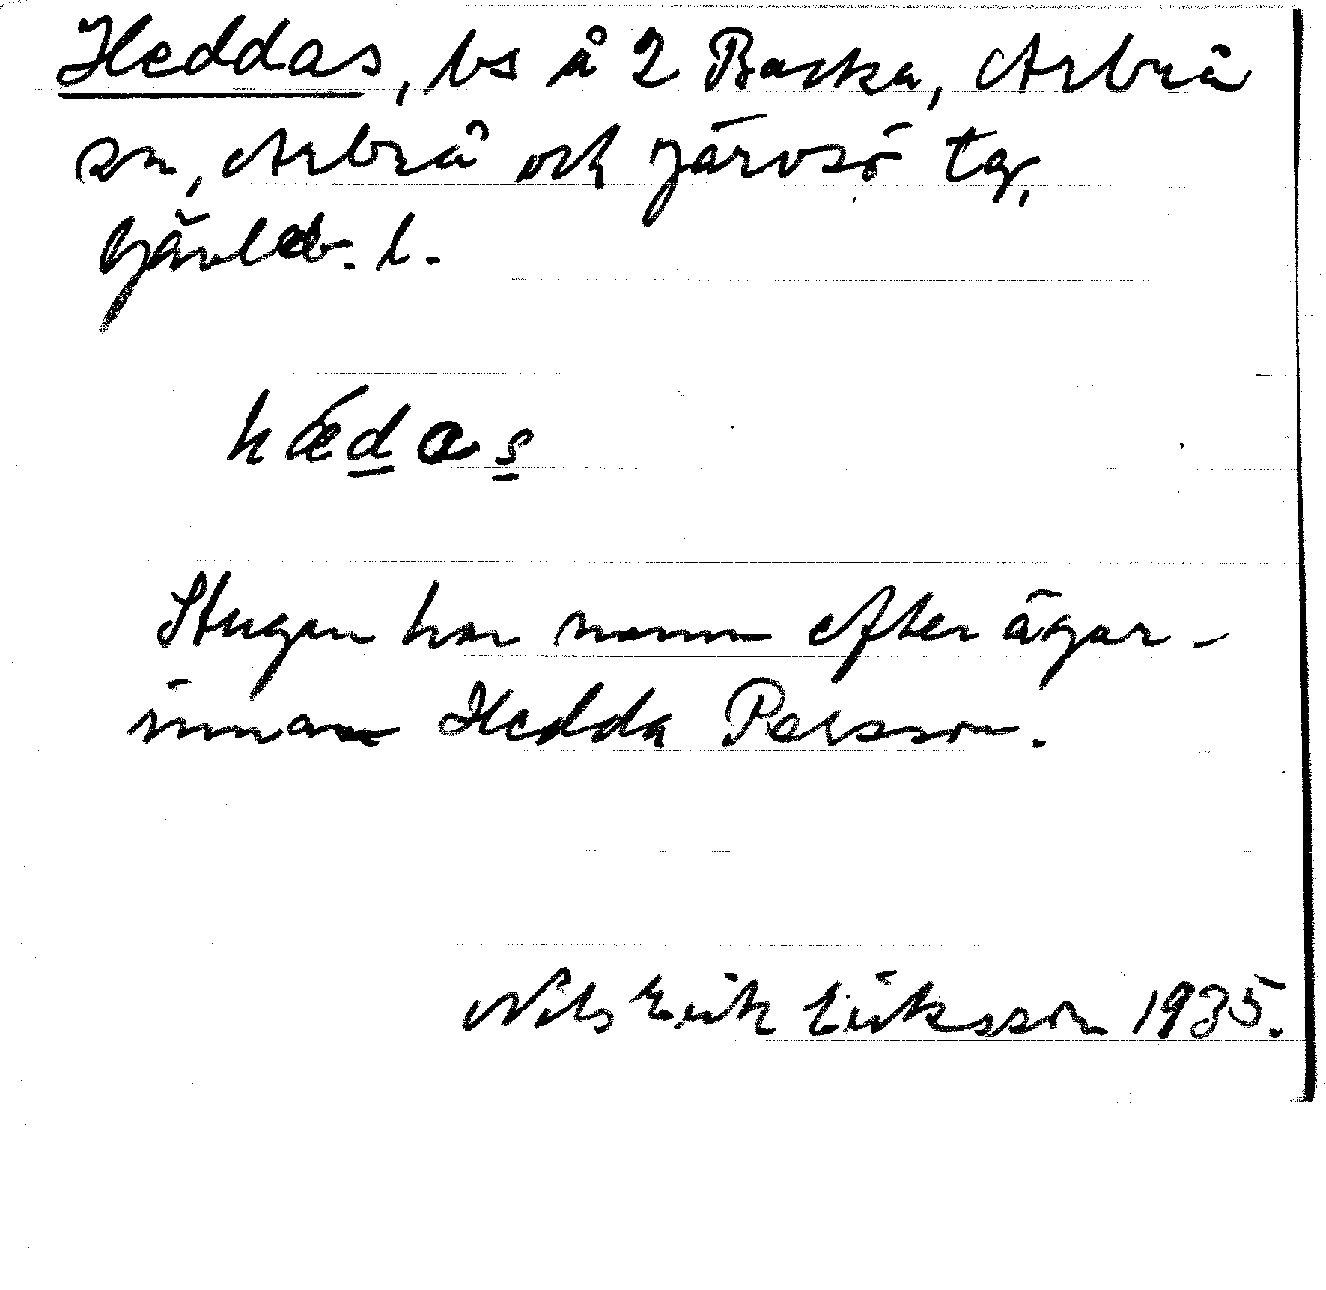 Heddas, bs å 2 Backa, Arbrå
sn, Arbrå och Järvsö tg,
Gävleb. l.
hædas
Stugan har namn efter ägar-
innan Hedda Persson.
Nils Erik Eriksson 1935.